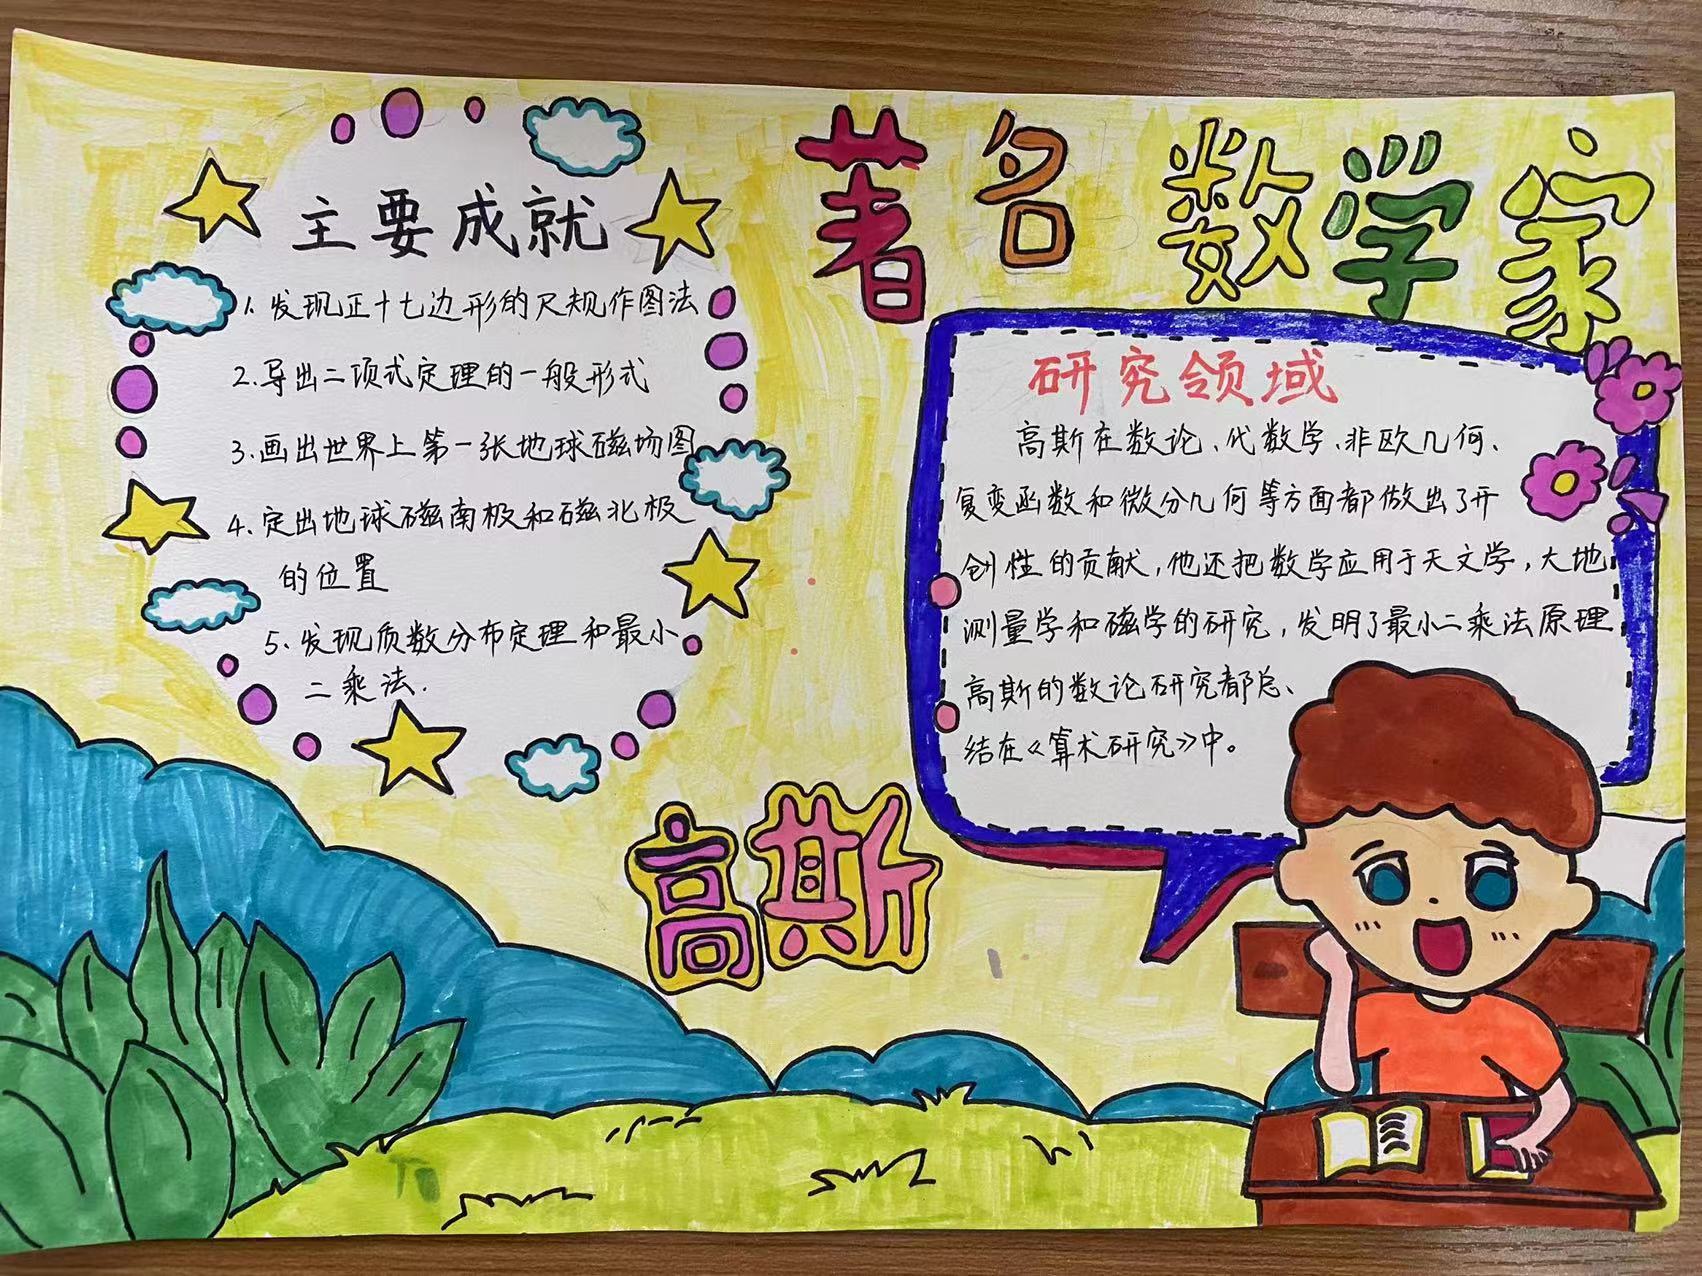 著名数学家
主要成就
1. 发现正十七边形的尺规作图法
2. 导出二项式定理的一般形式
3. 画出世界上第一张地球磁场图
4. 定出地球磁南极和磁北极
的位置
5、发现质数分布定理和最小
二乘法.
研究领域
高斯在数论、代数学、非欧几何、
复变函数和微分几何等方面都做出了开
创性的贡献,他还把数学应用于天文学,大地
测量学和磁学的研究,发明了最小二乘法原理
高斯的数论研究都总、
结在《算术研究》中。
高斯